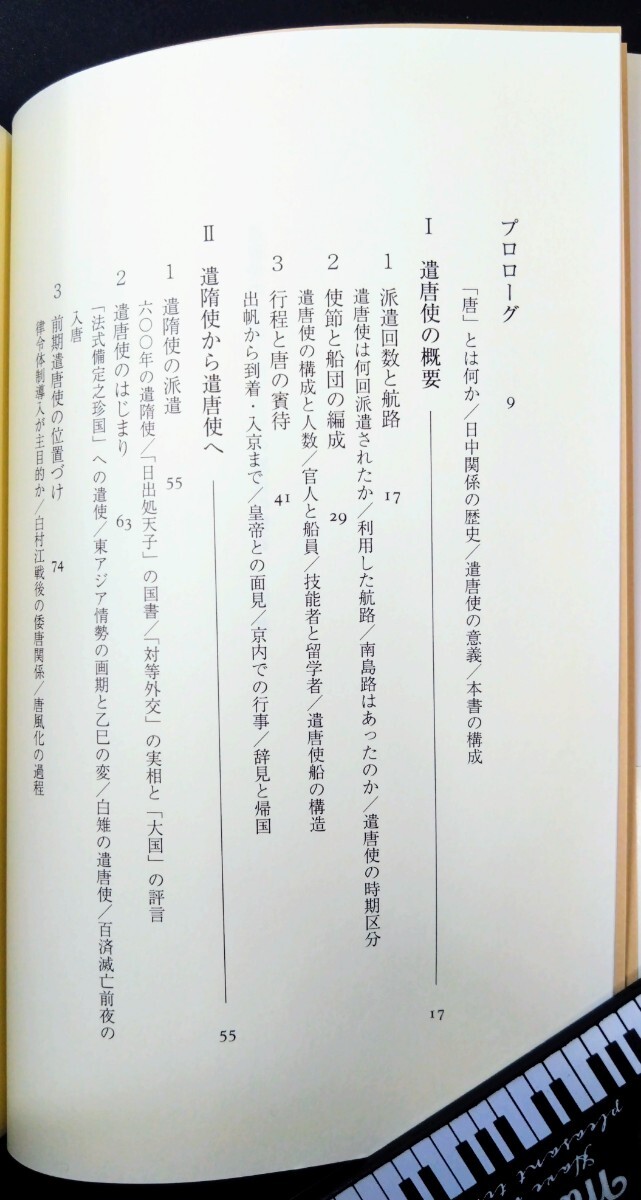 プロローグ 9
「唐」とは何か/日中関係の歴史/遣唐使の意義/本書の構成
Ⅰ 遣唐使の概要 17
1 派遣回数と航路 17
遣唐使は何回派遣されたか/利用した航路/南島路はあったのか/遣唐使の時期区分
2 使節と船団の編成 29
遣唐使の構成と人数/官人と船員/技能者と留学者/遣唐使船の構造
3 行程と唐の賓待 41
出帆から到着・入京まで/皇帝との面見/京内での行事/辞見と帰国
Ⅱ 遣隋使から遣唐使へ 55
1 遣隋使の派遣 55
六〇〇年の遣隋使/「日出処天子」の国書/「対等外交」の実相と「大国」の評言
2 遣唐使のはじまり 63
「法式備定之珍国」への遣使/東アジア情勢の画期と乙巳の変/白雉の遣唐使/百済滅亡前夜の
入唐
3 前期遣唐使の位置づけ 74
律令体制導入が主目的か/白村江戦後の倭唐関係/唐風化の過程
Have
pleasant